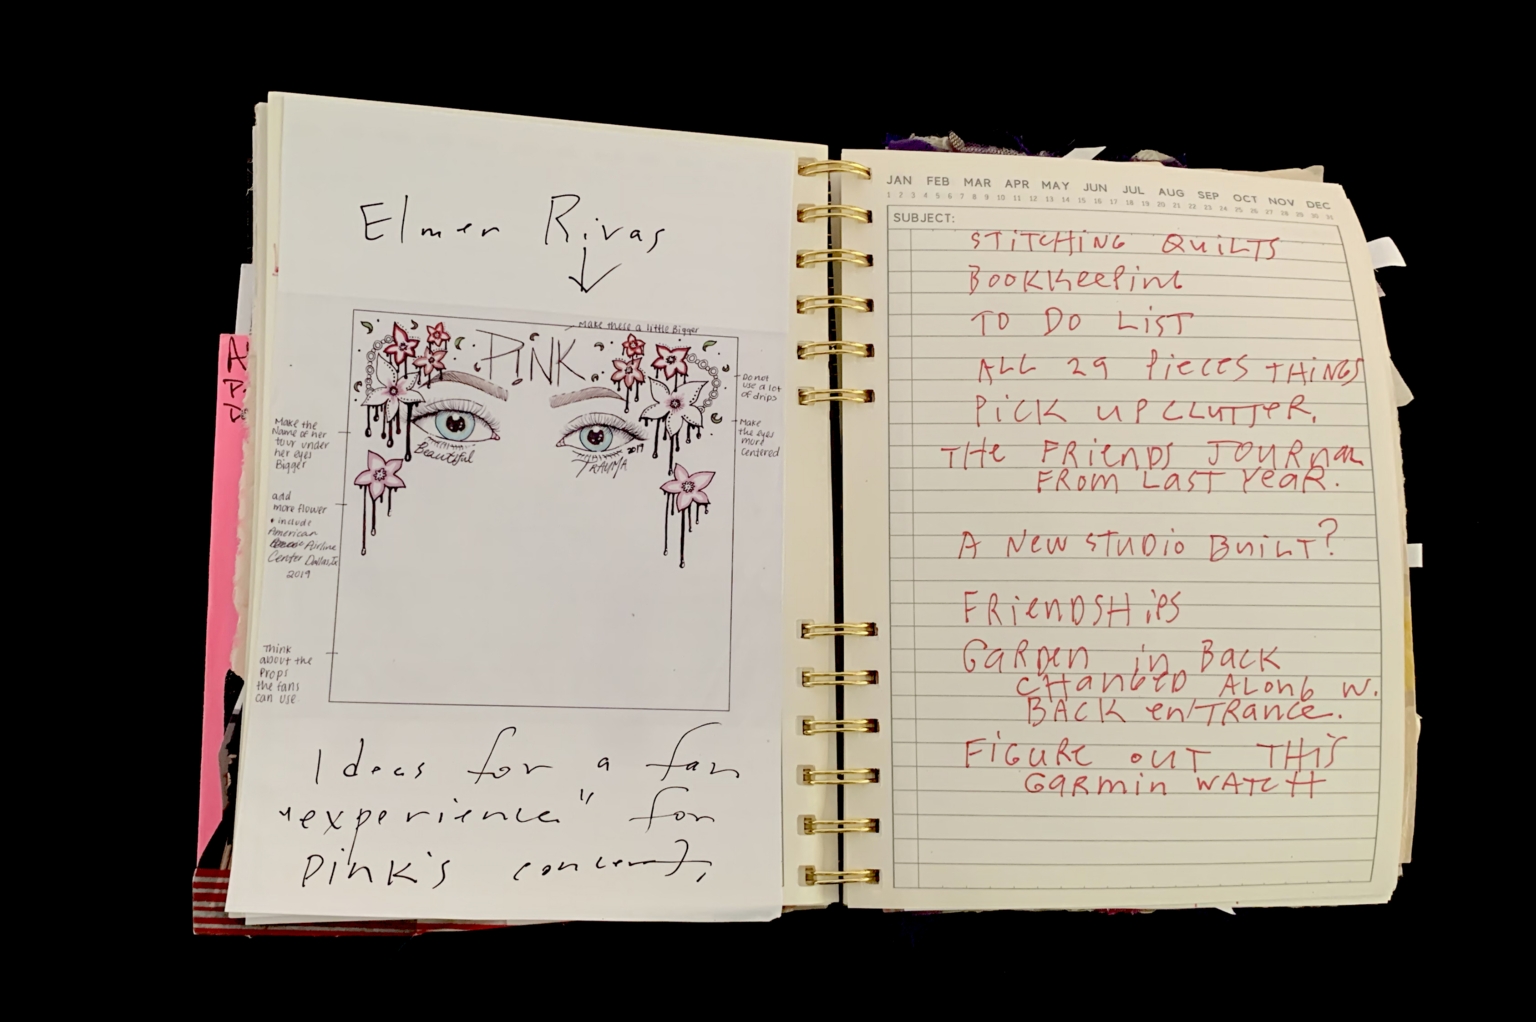 Elmer Rivas
Make these a little Bigger
PINK
Do not
use a lot
of drips
Make
the eyes
more
centered
Beautiful
2019
TRAUMA
Make the
Name of her
tour under
her eyes
Bigger
add
more flower
• include
American
Airline
Center Dallas, Tx
2019
Think
about the
Props
the fans
can use.
Ideas for a fan
"experience" for
Pink's concert,
JAN FEB MAR APR MAY JUN JUL AUG SEP OCT NOV DEC
1 2 3 4 5 6 7 8 9 10 11 12 13 14 15 16 17 18 19 20 21 22 23 24 25 26 27 28 29 30 31
SUBJECT:
STITCHING QUILTS
BOOKKeepinG
TO DO LIST
ALL 29 Pieces THINGS
PICK UP CLUTTER.
THe FRienDS JOURnaL
FROM LAST YeaR.
A New STUDIO BUILT?
FRienDSHiPS
GaRDen in BACK
CHanGeD ALonG w.
BACK enTRance.
FiGURe OUT THiS
GaRmin WATCH